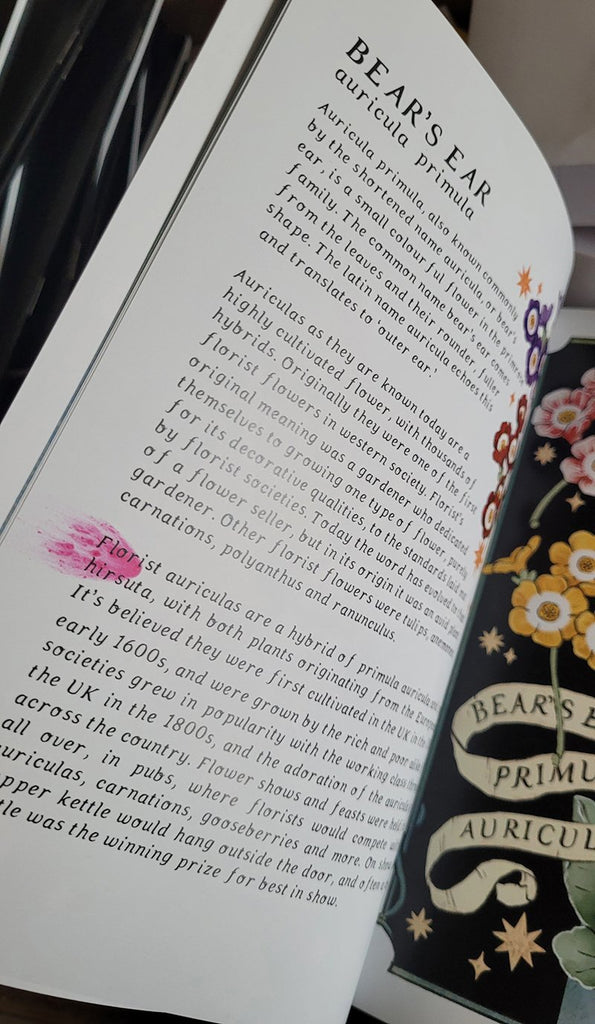 BEAR'S EAR
auricula primula
Auricula primula, also known commonly
by the shortened name auricula, or bear's
ear, is a small colour ful flower in the primrose
family. The common name bear's ear comes
from the leaves and their rounder, fuller
shape. The latin name auricula echoes this
and translates to 'outer ear.'
Auriculas as they are known today are a
highly cultivated flower, with thousands of
hybrids. Originally they were one of the first
florist flowers in western society. Florist's
original meaning was a gardener who dedicated
themselves to growing one type of flower, purely
for its decorative qualities, to the standards laid out
by florist societies. Today the word has evolved to that
of a flower seller, but in its origin it was an avid plant
gardener. Other florist flowers were tulips, anemones,
carnations, polyanthus and ranunculus.
Florist auriculas are a hybrid of primula auricula and
hirsuta, with both plants originating from the European
It's believed they were first cultivated in the UK in the
early 1600s, and were grown by the rich and poor alike
societies grew in popularity with the working class
the UK in the 1800s, and the adoration of the auricula
across the country. Flower shows and feasts were held
all over, in pubs, where florists would compete
auriculas, carnations, gooseberries and more. On show
kettle would hang outside the door, and often a
was the winning prize for best in show.
BEAR'S E
PRIMU
AURICUL